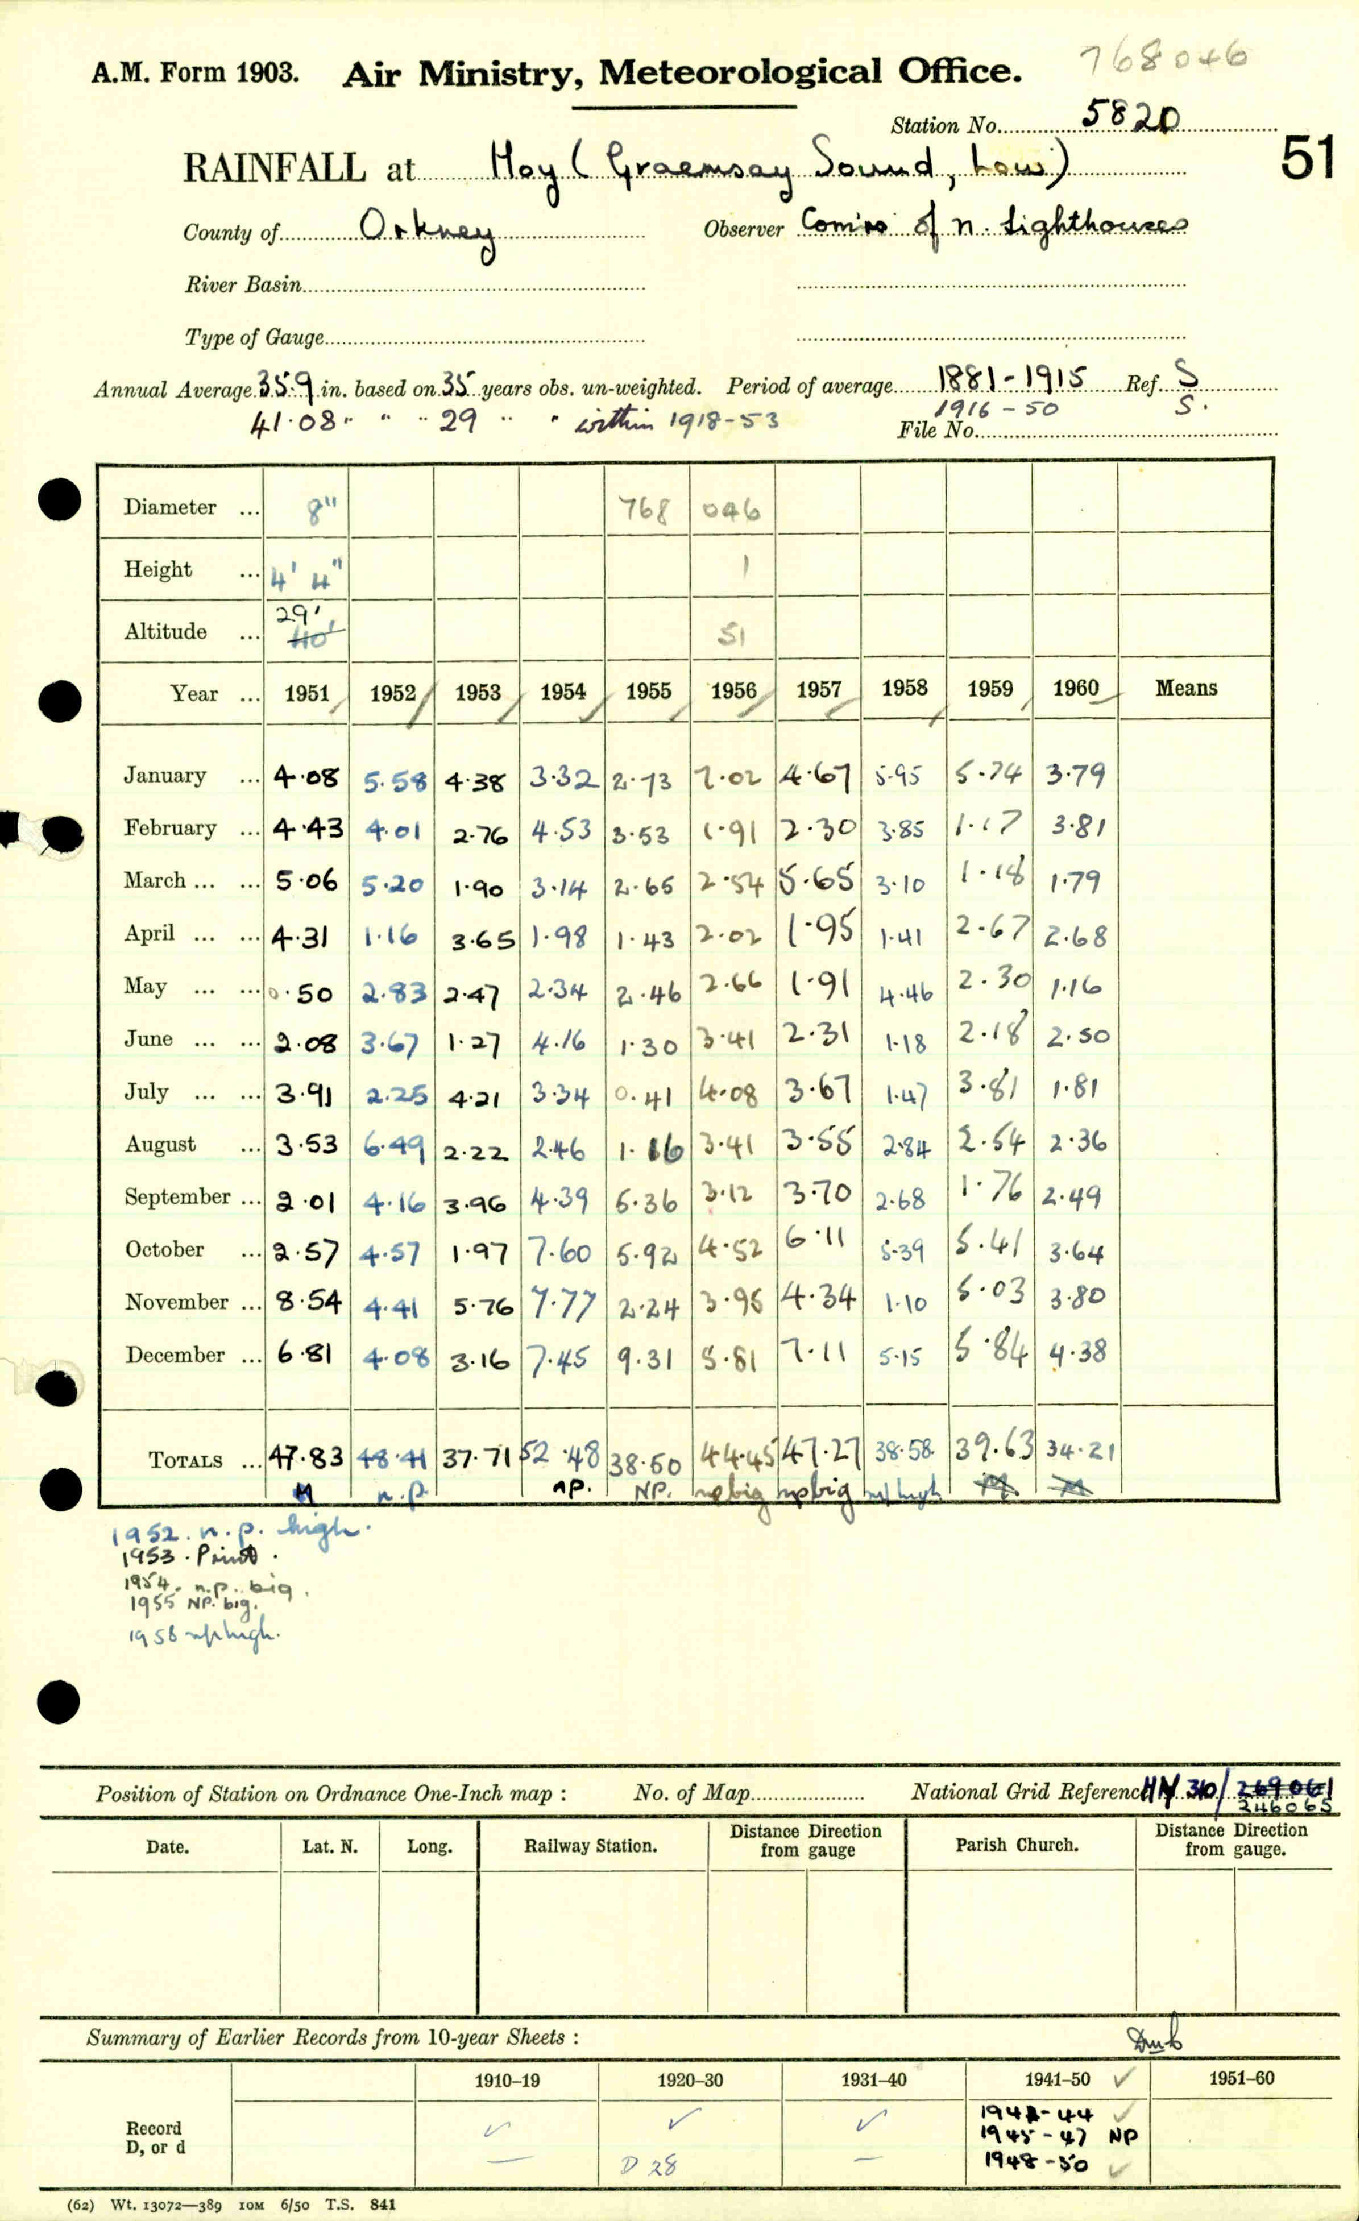 768046
A.M. Form 1903. Air Ministry, Meteorological Office.
Station No. 5820
51
RAINFALL at Hoy (Graemsay Sound, Low)
County of Orkney Observer Comrs of N. Lighthouses
River Basin
Type of Gauge
Annual Average 35.9 in. based on 35 years obs. un-weighted. Period of average 1881-1915 Ref. S
41.08 " " " 29 " " within 1918-53 1916-50 S.
File No.
Diameter ... 8" 768 046
Height ... 4' 4" 1
Altitude ... 29' 40' 51
Year ... 1951 1952 1953 1954 1955 1956 1957 1958 1959 1960 Means
January ... 4.08 5.58 4.38 3.32 2.73 7.02 4.67 5.95 5.74 3.79
February ... 4.43 4.01 2.76 4.53 3.53 1.91 2.30 3.85 1.17 3.81
March ... ... 5.06 5.20 1.90 3.14 2.65 2.54 5.65 3.10 1.18 1.79
April ... ... 4.31 1.16 3.65 1.98 1.43 2.02 1.95 1.41 2.67 2.68
May ... ... 0.50 2.83 2.47 2.34 2.46 2.66 1.91 4.46 2.30 1.16
June ... ... 2.08 3.67 1.27 4.16 1.30 3.41 2.31 1.18 2.18 2.50
July ... ... 3.91 2.25 4.21 3.34 0.41 4.08 3.67 1.47 3.81 1.81
August ... 3.53 6.49 2.22 2.46 1.16 3.41 3.55 2.84 2.54 2.36
September ... 2.01 4.16 3.96 4.39 5.36 3.12 3.70 2.68 1.76 2.49
October ... 2.57 4.57 1.97 7.60 5.92 4.52 6.11 5.39 5.41 3.64
November ... 8.54 4.41 5.76 7.77 2.24 3.95 4.34 1.10 5.03 3.80
December ... 6.81 4.08 3.16 7.45 9.31 5.81 7.11 5.15 5.84 4.38
TOTALS ... 47.83 48.41 37.71 52.48 38.50 44.45 47.27 38.58 39.63 34.21
M n.p. np. NP. np big np big np high M M
1952. n.p. high.
1953. Print.
1954. n.p. big.
1955 NP. big.
1958 np high.
Position of Station on Ordnance One-Inch map : No. of Map National Grid Reference HY 30/ 269061
246065
Date. Lat. N. Long. Railway Station. Distance from gauge Direction Parish Church. Distance from gauge. Direction
Summary of Earlier Records from 10-year Sheets :
1910–19 1920–30 1931–40 1941–50 ✓ 1951–60
Record ✓ ✓ ✓ 1941-44 ✓
D, or d — D 28 — 1945-47 NP
1948-50 ✓
(62) Wt. 13072—389 10M 6/50 T.S. 841